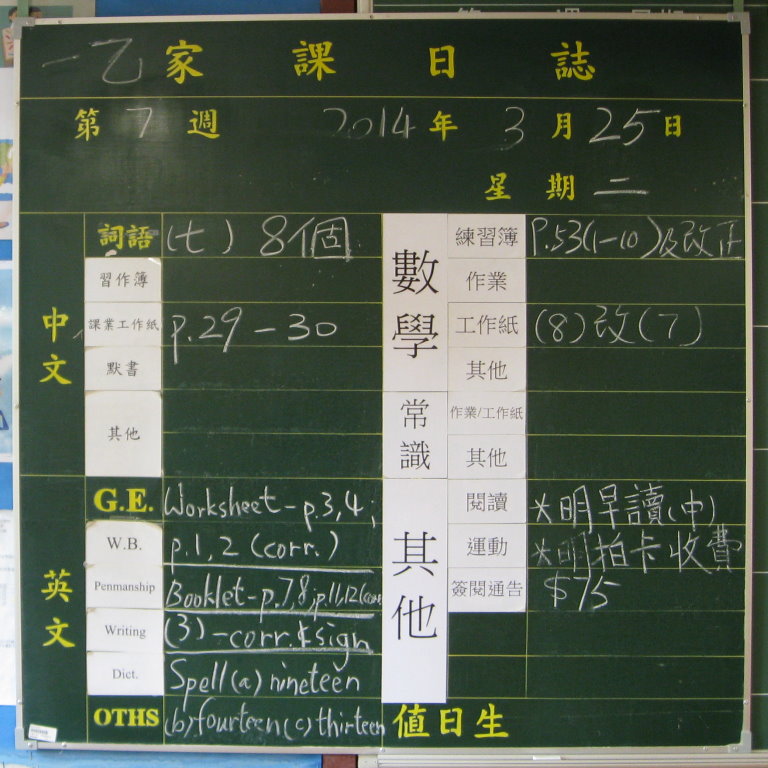 一乙家課日誌
第7週 2014年3月25日
星期二
中文
詞語 (七) 8個
習作簿
課業工作紙 p.29-30
默書
其他
英文
G.E. Worksheet - p.3,4;
W.B. p.1, 2 (corr.)
Penmanship Booklet - p.7,8; p.11,12 (corr.
Writing (3) - corr. & sign
Dict. Spell (a) nineteen
OTHS (b) fourteen (c) thirteen
數學
練習簿 P.53(1-10)及改正
作業
工作紙 (8)改(7)
其他
常識
作業/工作紙
其他
其他
閱讀 ※明早讀(中)
運動 ※明拍卡收費
簽閱通告 $75
值日生